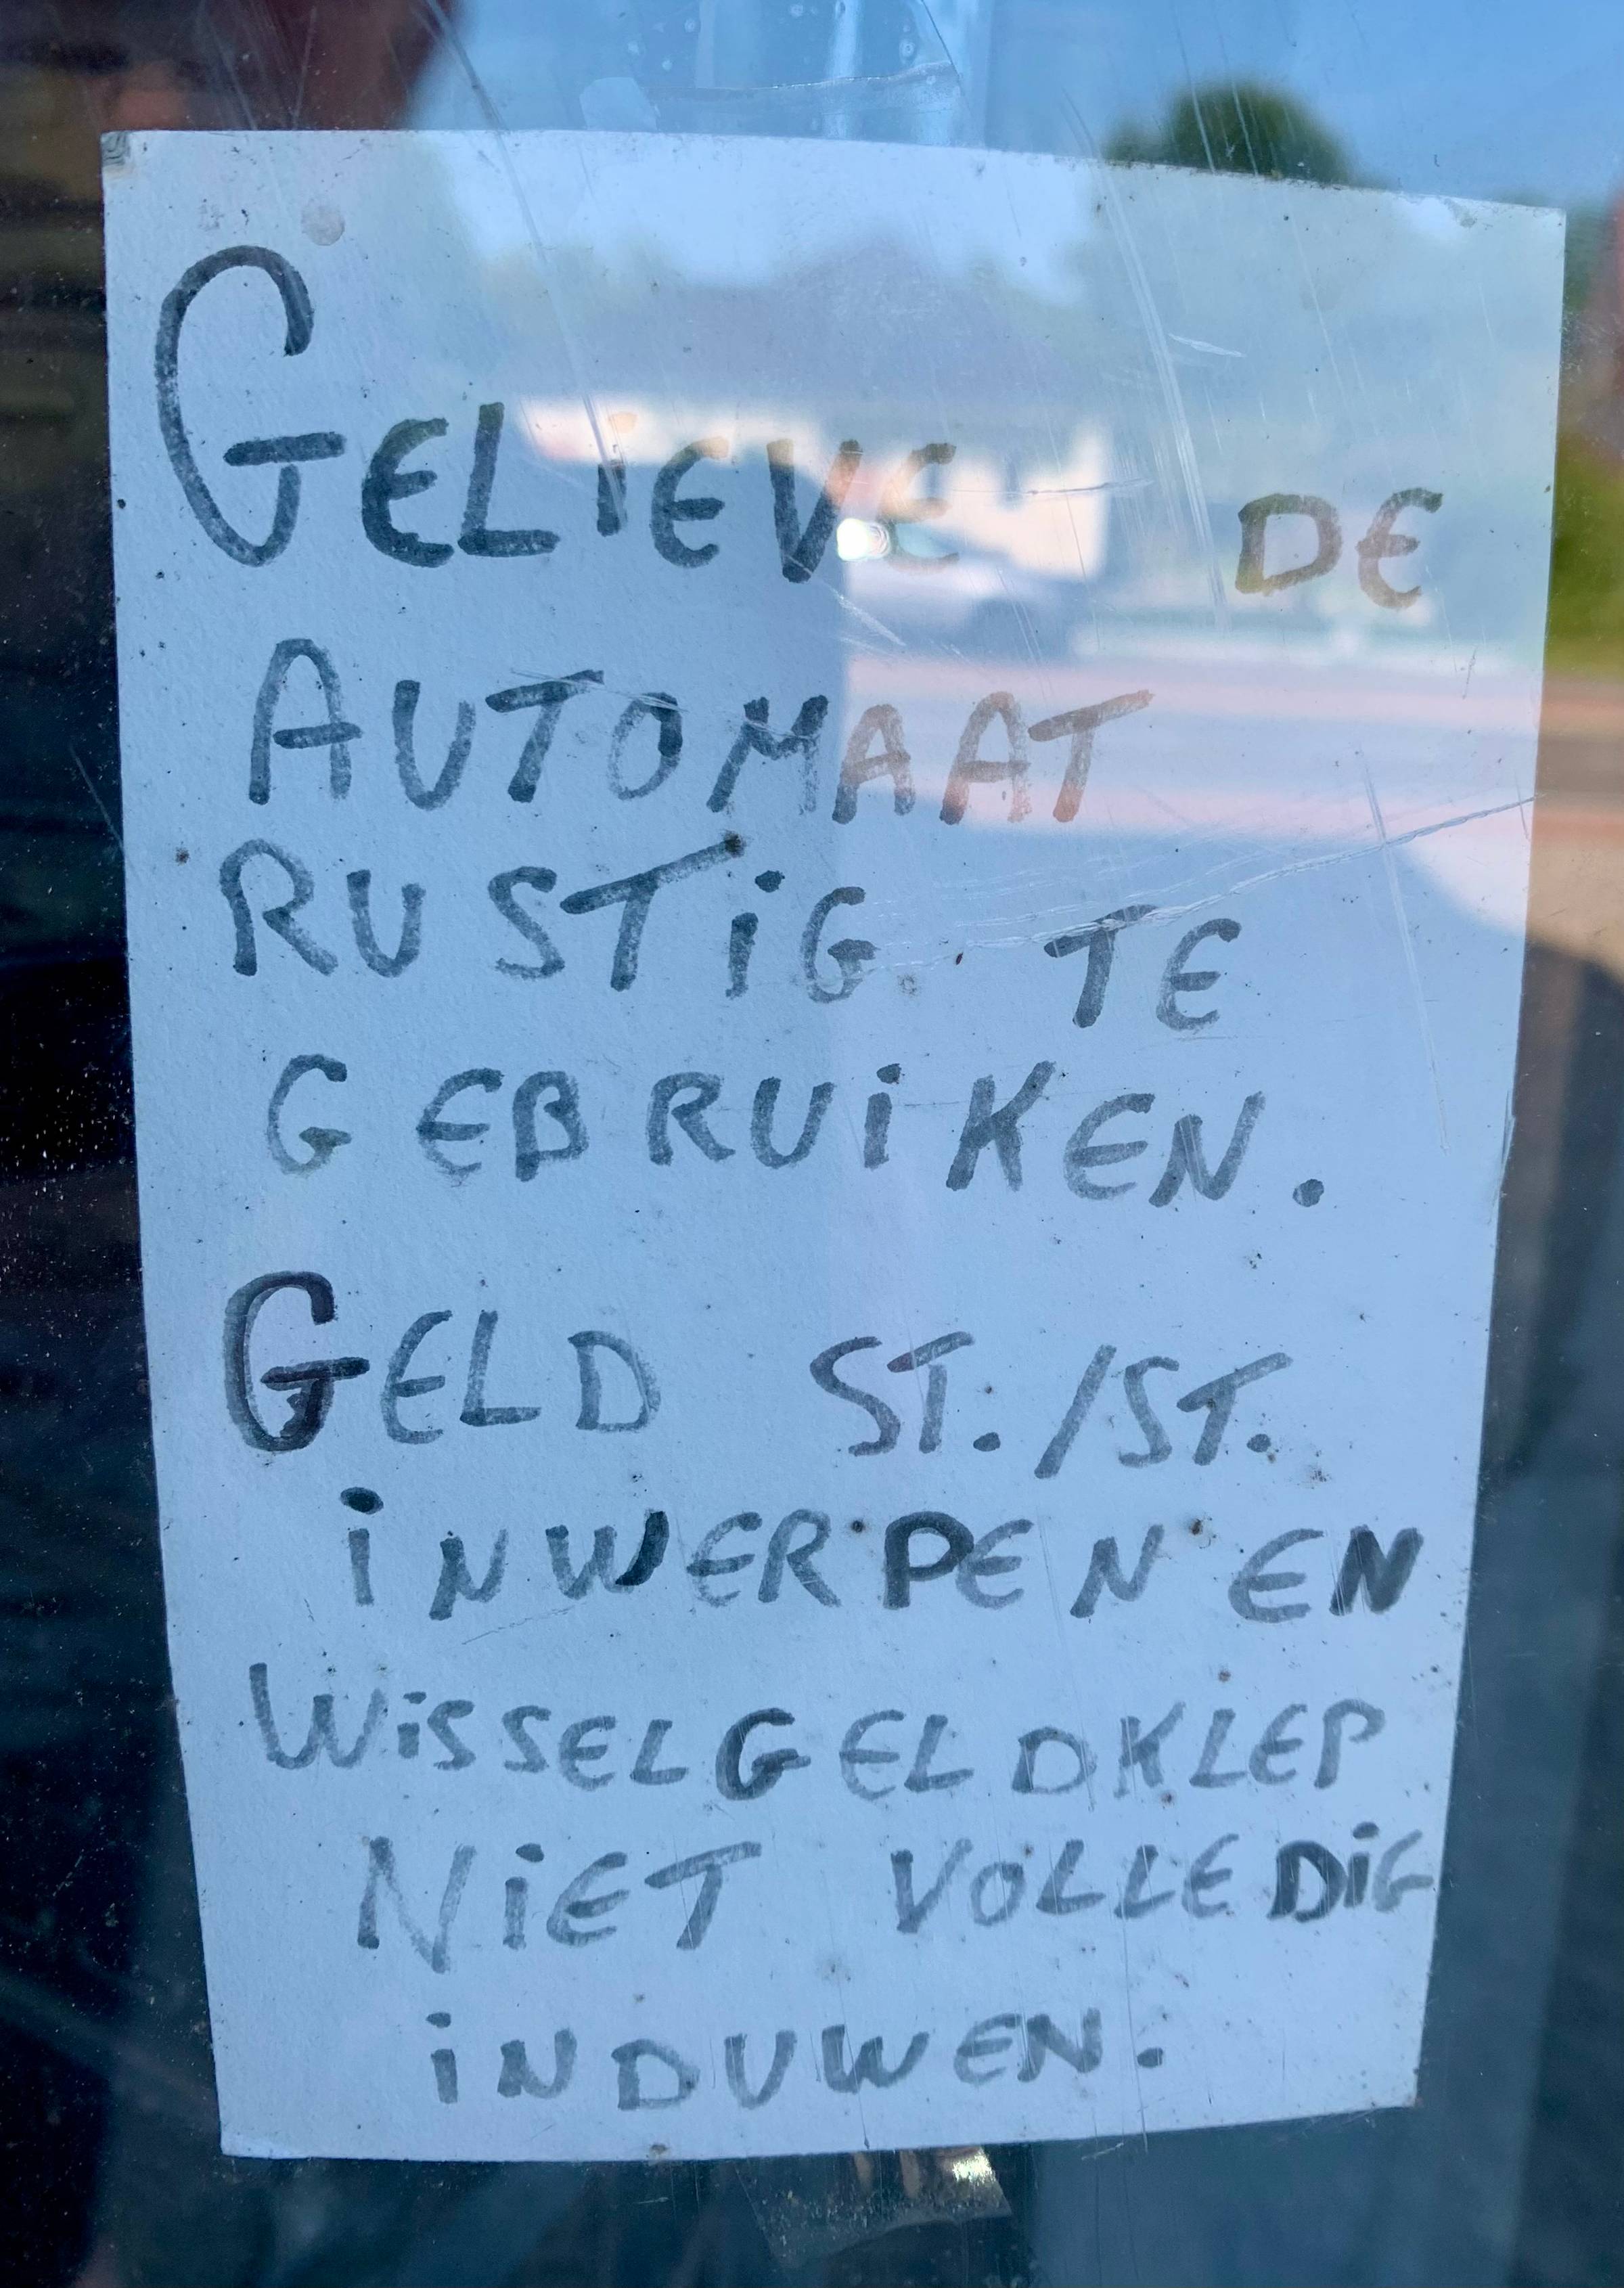 GELiEVE DE
AUTOMAAT
RUSTiG TE
GEBRUiKEN.
GELD ST./ST.
iNWERPEN EN
WiSSELGELDKLEP
NiET VOLLEDiG
iNDUWEN.